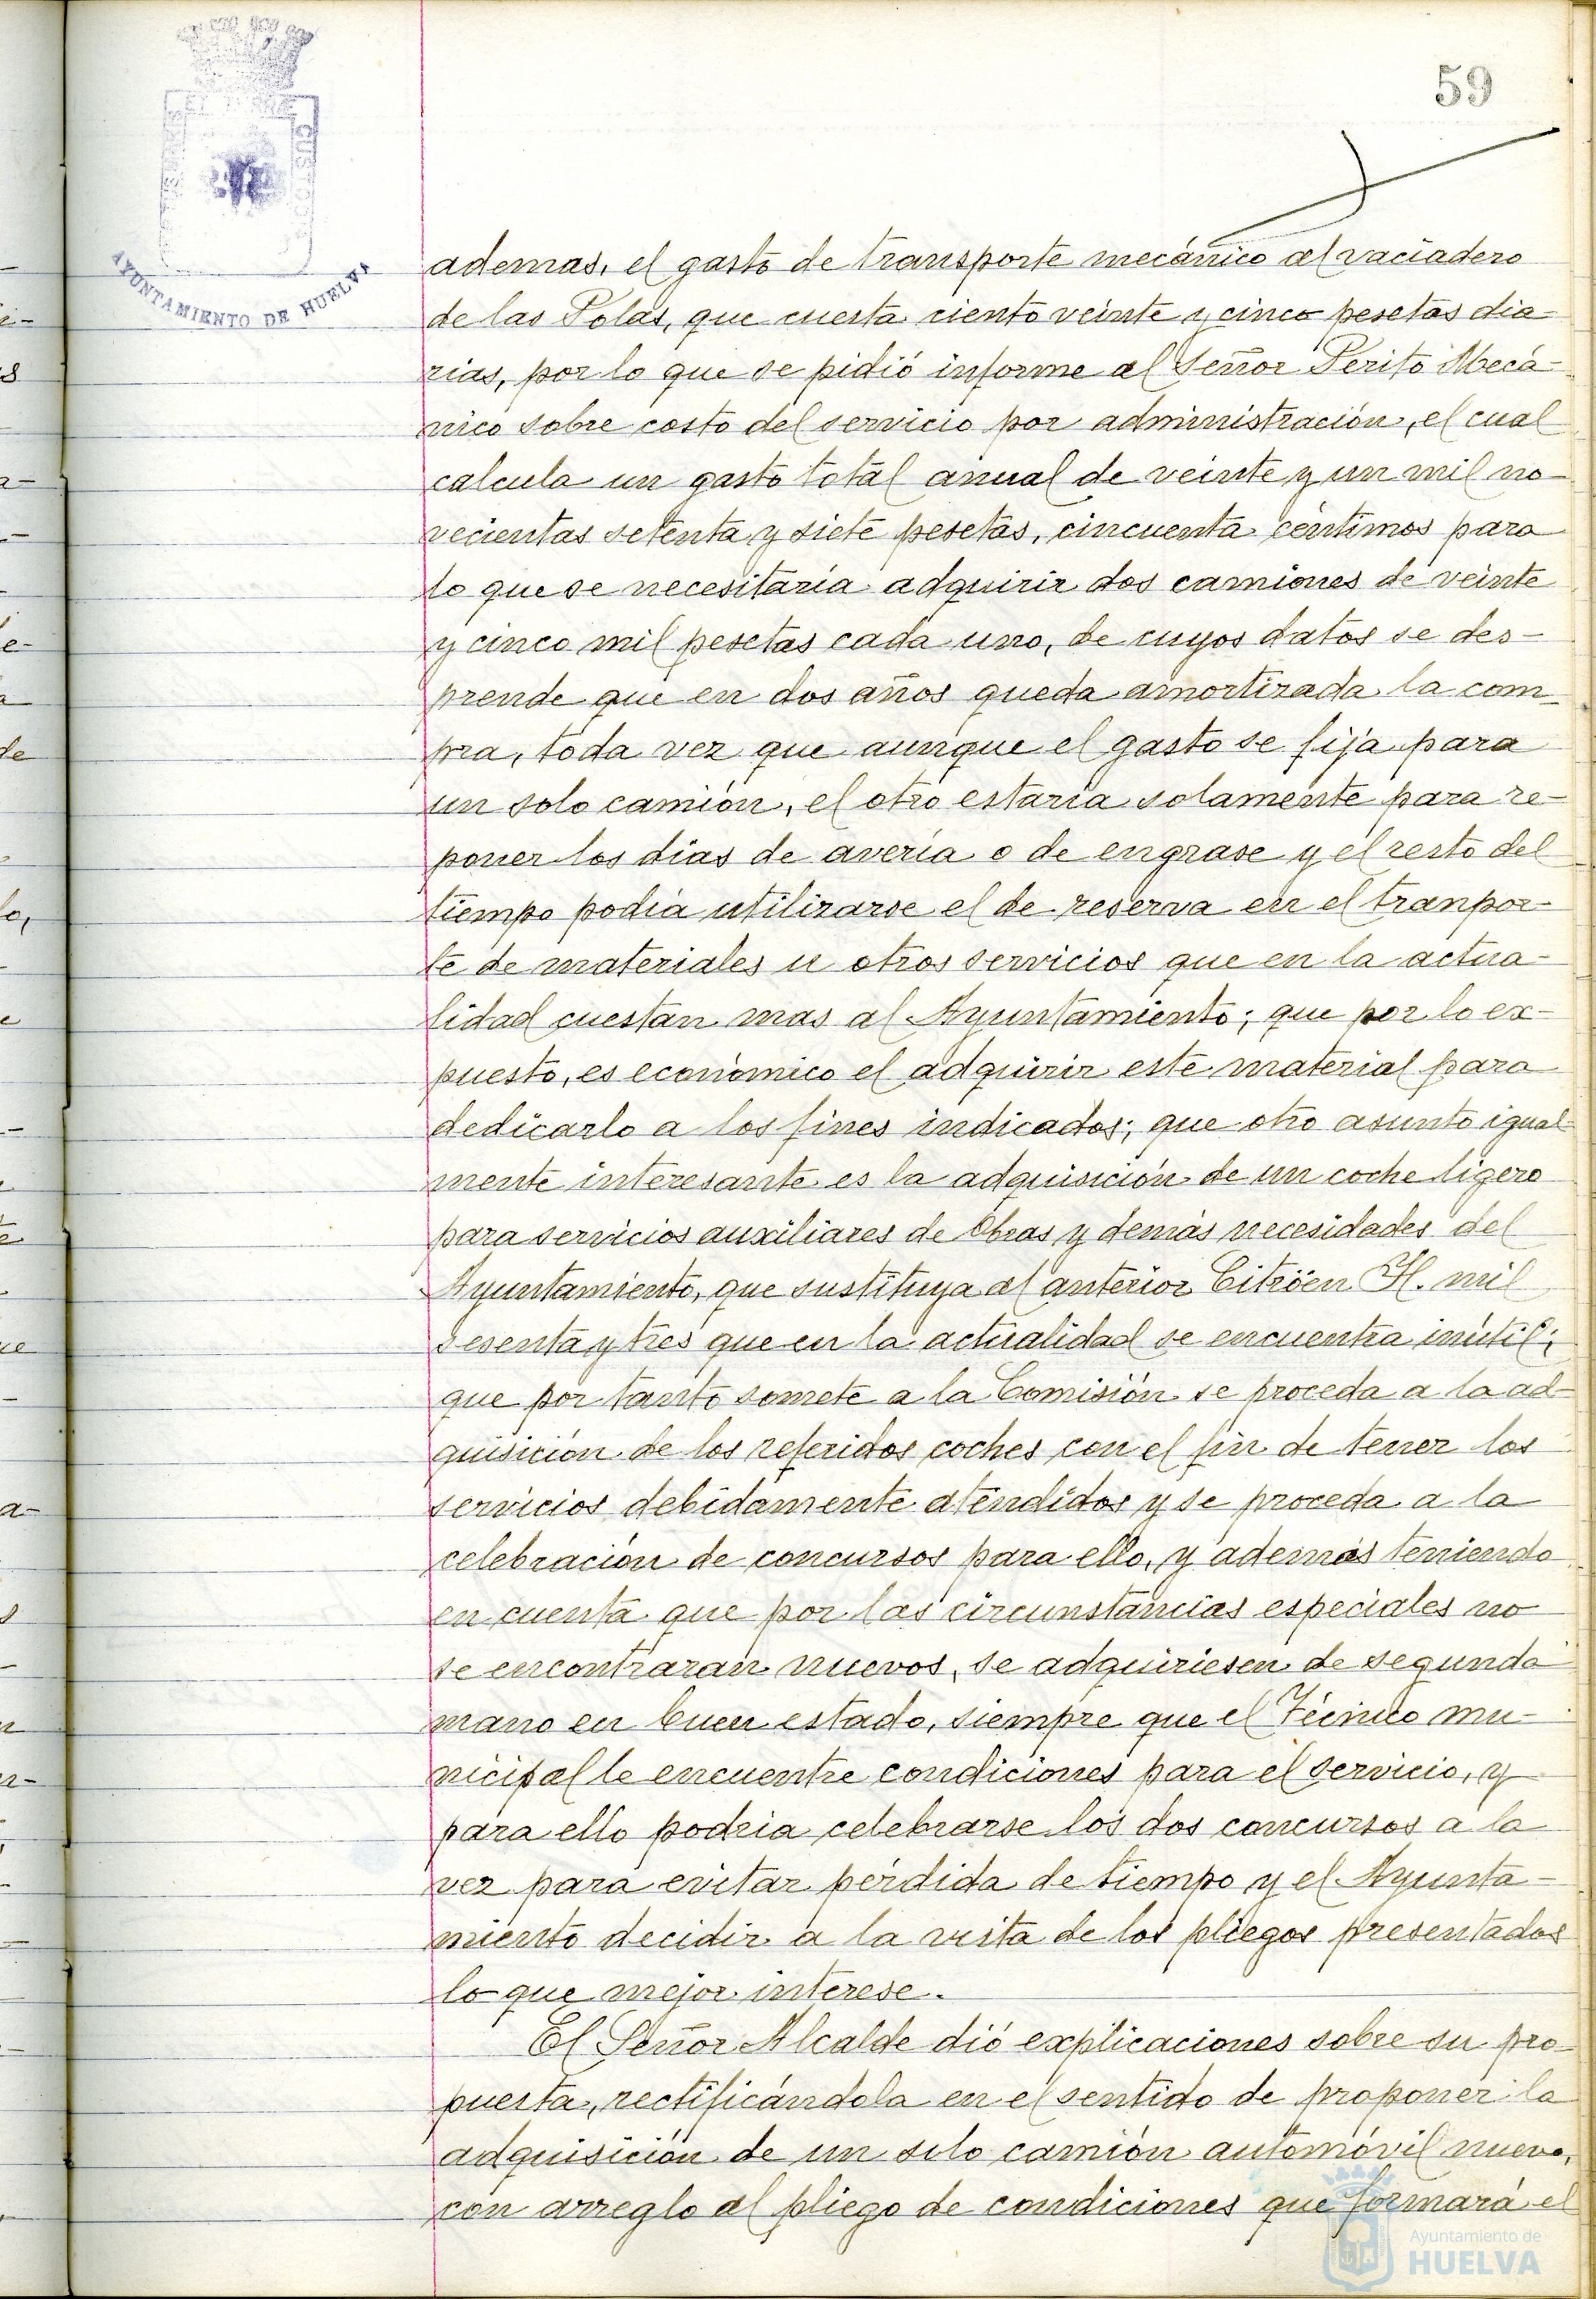 59
AYUNTAMIENTO DE HUELVA
ademas, el gasto de transporte mecánico al vaciadero
de las Polas, que cuesta ciento veinte y cinco pesetas dia-
rias, por lo que se pidió informe al Señor Perito Mecá-
nico sobre costo del servicio por administración, el cual
calcula un gasto total anual de veinte y un mil no-
vecientas setenta y siete pesetas, cincuenta centimos para
lo que se necesitaria adquirir dos camiones de veinte
y cinco mil pesetas cada uno, de cuyos datos se des-
prende que en dos años queda amortizada la com-
pra, toda vez que aunque el gasto se fija para
un solo camión, el otro estaria solamente para re-
poner los dias de averia o de engrase y el resto del
tiempo podia utilizarse el de reserva en el tranpor-
te de materiales u otros servicios que en la actua-
lidad cuestan mas al Ayuntamiento; que por lo ex-
puesto, es económico el adquirir este material para
dedicarlo a los fines indicados; que otro asunto igual-
mente interesante es la adquisición de un coche ligero
para servicios auxiliares de Obras y demás necesidades del
Ayuntamiento, que sustituya al anterior Citröen H. mil
sesenta y tres que en la actualidad se encuentra inútil;
que por tanto somete a la Comisión se proceda a la ad-
quisición de los referidos coches con el fin de tener los
servicios debidamente atendidos y se proceda a la
celebración de concursos para ello, y además teniendo
en cuenta que por las circunstancias especiales no
se encontraran nuevos, se adquiriesen de segunda
mano en buen estado, siempre que el Técnico mu-
nicipal le encuentre condiciones para el servicio, y
para ello podria celebrarse los dos concursos a la
vez para evitar pérdida de tiempo y el Ayunta-
miento decidir a la vista de los pliegos presentados
lo que mejor interese.
El Señor Alcalde dió explicaciones sobre su pro-
puesta, rectificándola en el sentido de proponer la
adquisición de un solo camión automóvil nuevo,
con arreglo al pliego de condiciones que formará el
Ayuntamiento de
HUELVA